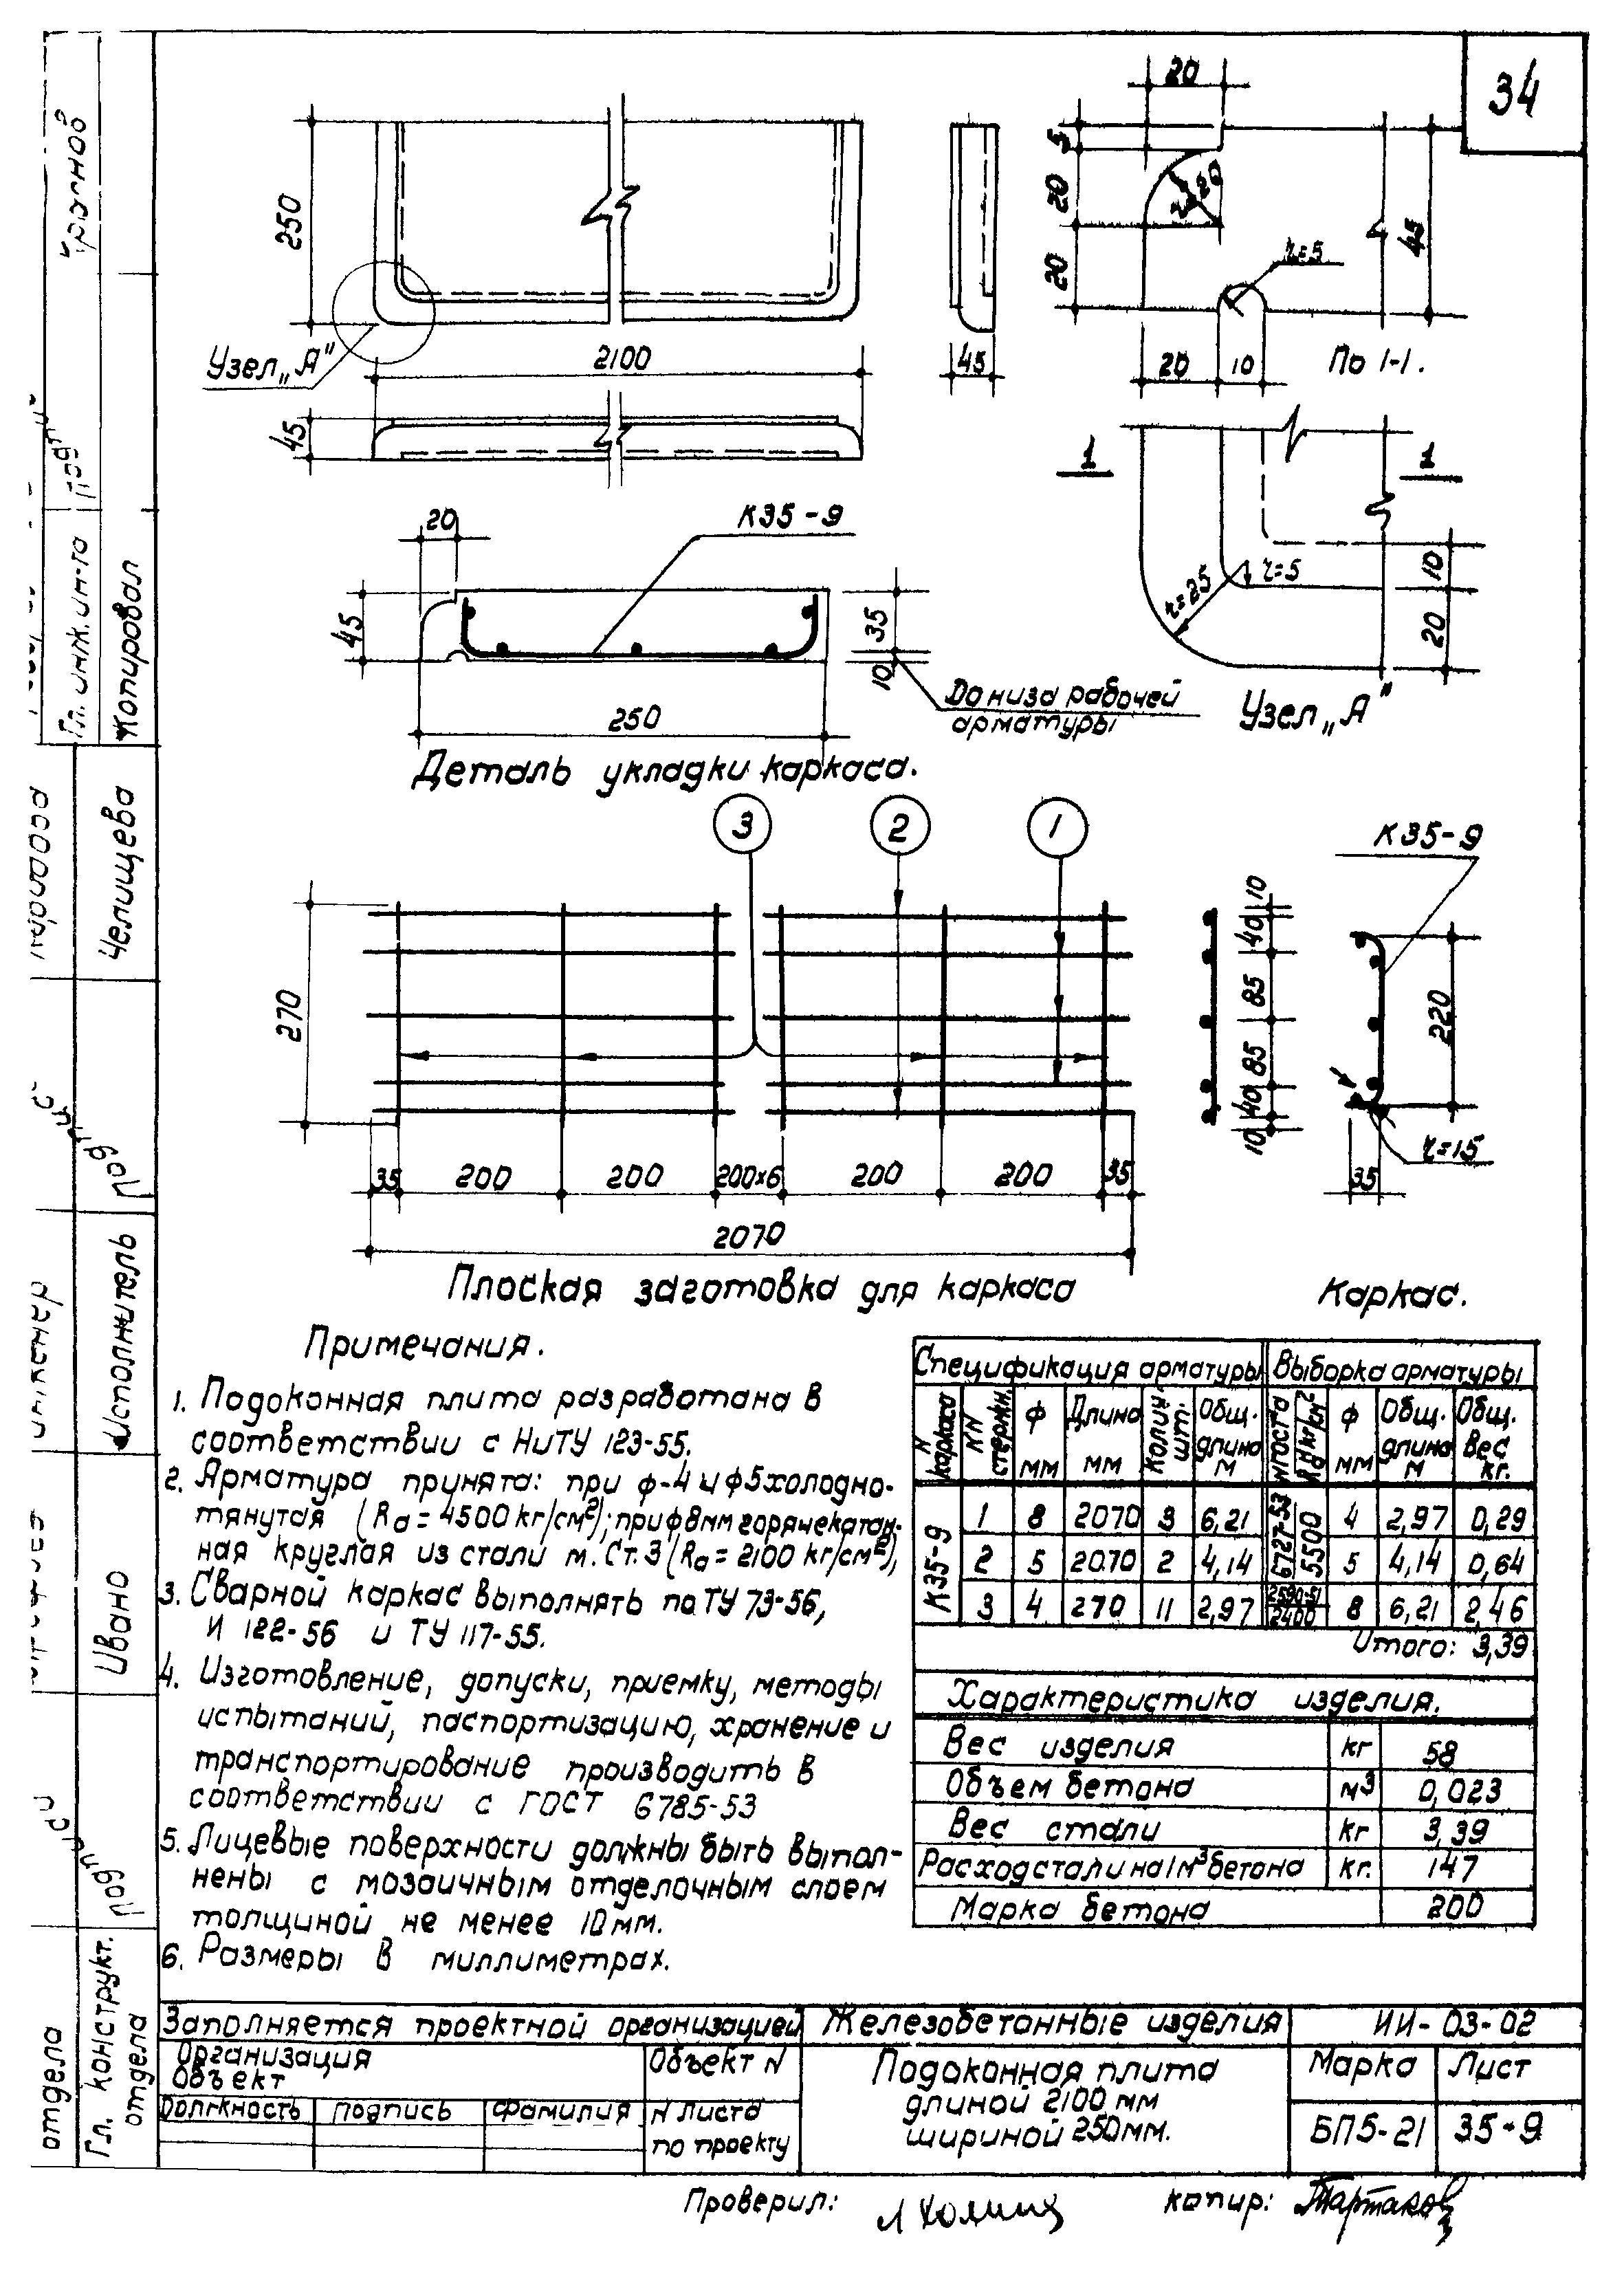 34
20
5
20
20
r=20
r=5
45
20
10
По 1-1.
250
Узел „А"
2100
45
45
1
1
r=25
r=5
10
20
Узел „А"
20
К35-9
45
35
10
До низа рабочей
арматуры
250
Деталь укладки каркаса.
3
2
1
К35-9
270
10
40
85
85
40
10
220
r=15
35
35
200
200
200х6
200
200
35
2070
Плоская заготовка для каркаса
Каркас.
Примечания.
1. Подоконная плита разработана в
соответствии с НиТУ 123-55.
2. Арматура принята: при ф-4 и ф5 холодно-
тянутая (Rа = 4500 кг/см²); при ф 8мм горячекатан-
ная круглая из стали м. Ст. 3 (Rа = 2100 кг/см²),
3. Сварной каркас выполнять по ТУ 73-56,
И 122-56 и ТУ 117-55.
4. Изготовление, допуски, приемку, методы
испытаний, паспортизацию, хранение и
транспортирование производить в
соответствии с ГОСТ 6785-53
5. Лицевые поверхности должны быть выпол-
нены с мозаичным отделочным слоем
толщиной не менее 10 мм.
6. Размеры в миллиметрах.
Спецификация арматуры Выборка арматуры
N каркаса NN стержн. ф мм Длина мм Колич. шт. Общ. длина м ф мм Общ. длина м Общ. вес кг.
К35-9
1 8 2070 3 6,21 6727-53 5500 4 2,97 0,29
2 5 2070 2 4,14 5 4,14 0,64
3 4 270 11 2,97 2590-51 2400 8 6,21 2,46
Итого: 3,39
Характеристика изделия.
Вес изделия кг 58
Объем бетона м³ 0,023
Вес стали кг 3,39
Расход стали на 1 м³ бетона кг. 147
Марка бетона 200
Заполняется проектной организацией Железобетонные изделия ИИ-03-02
Организация Объект N
Объект
Подоконная плита
длиной 2100 мм
шириной 250мм.
Марка Лист
БП5-21 35-9
Должность подпись фамилия N Листа
по проекту
Проверил:
копир:
Гл. инж. ин-та
Копировал
Челищева
Исполнитель
Ивано
Гл. конструкт.
отдела
отдела